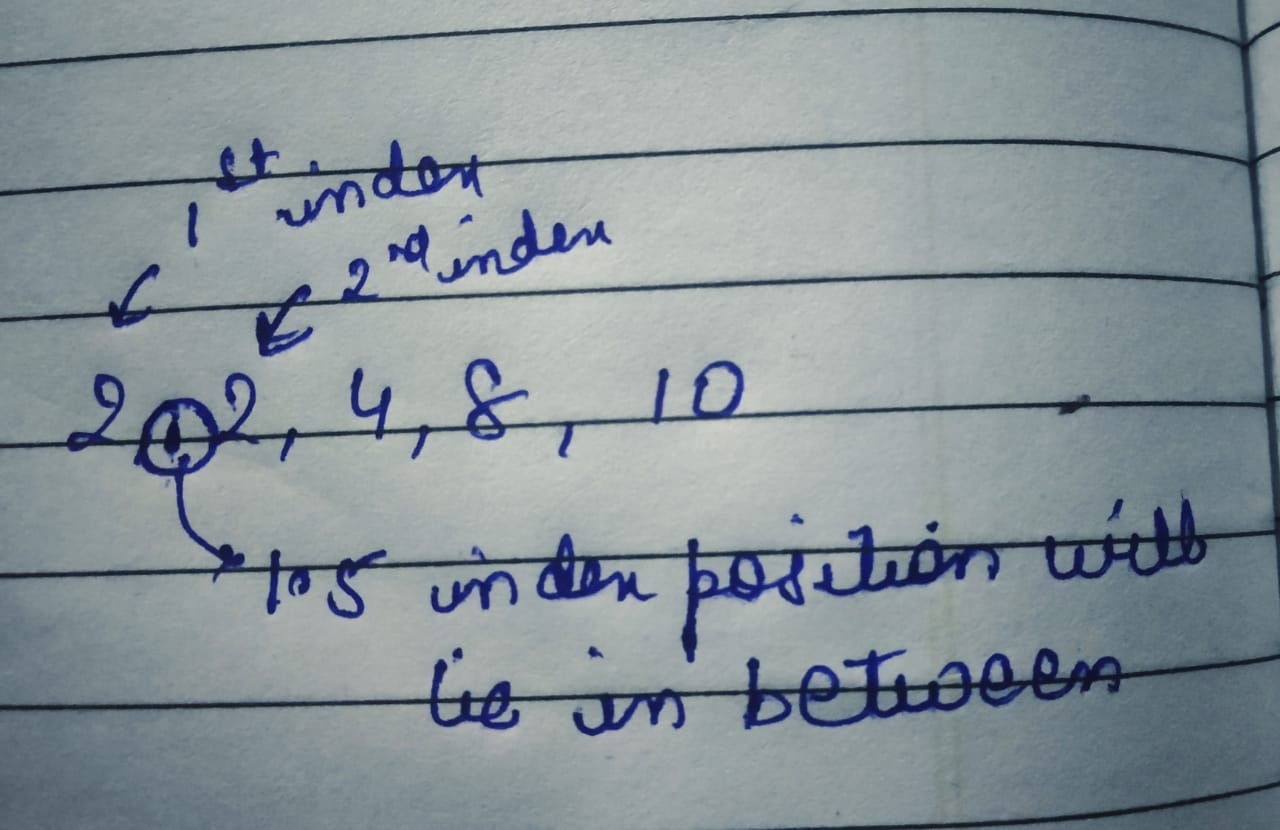 1st index
2nd index
2, 2, 4, 8, 10
1.5 index position will
lie in between